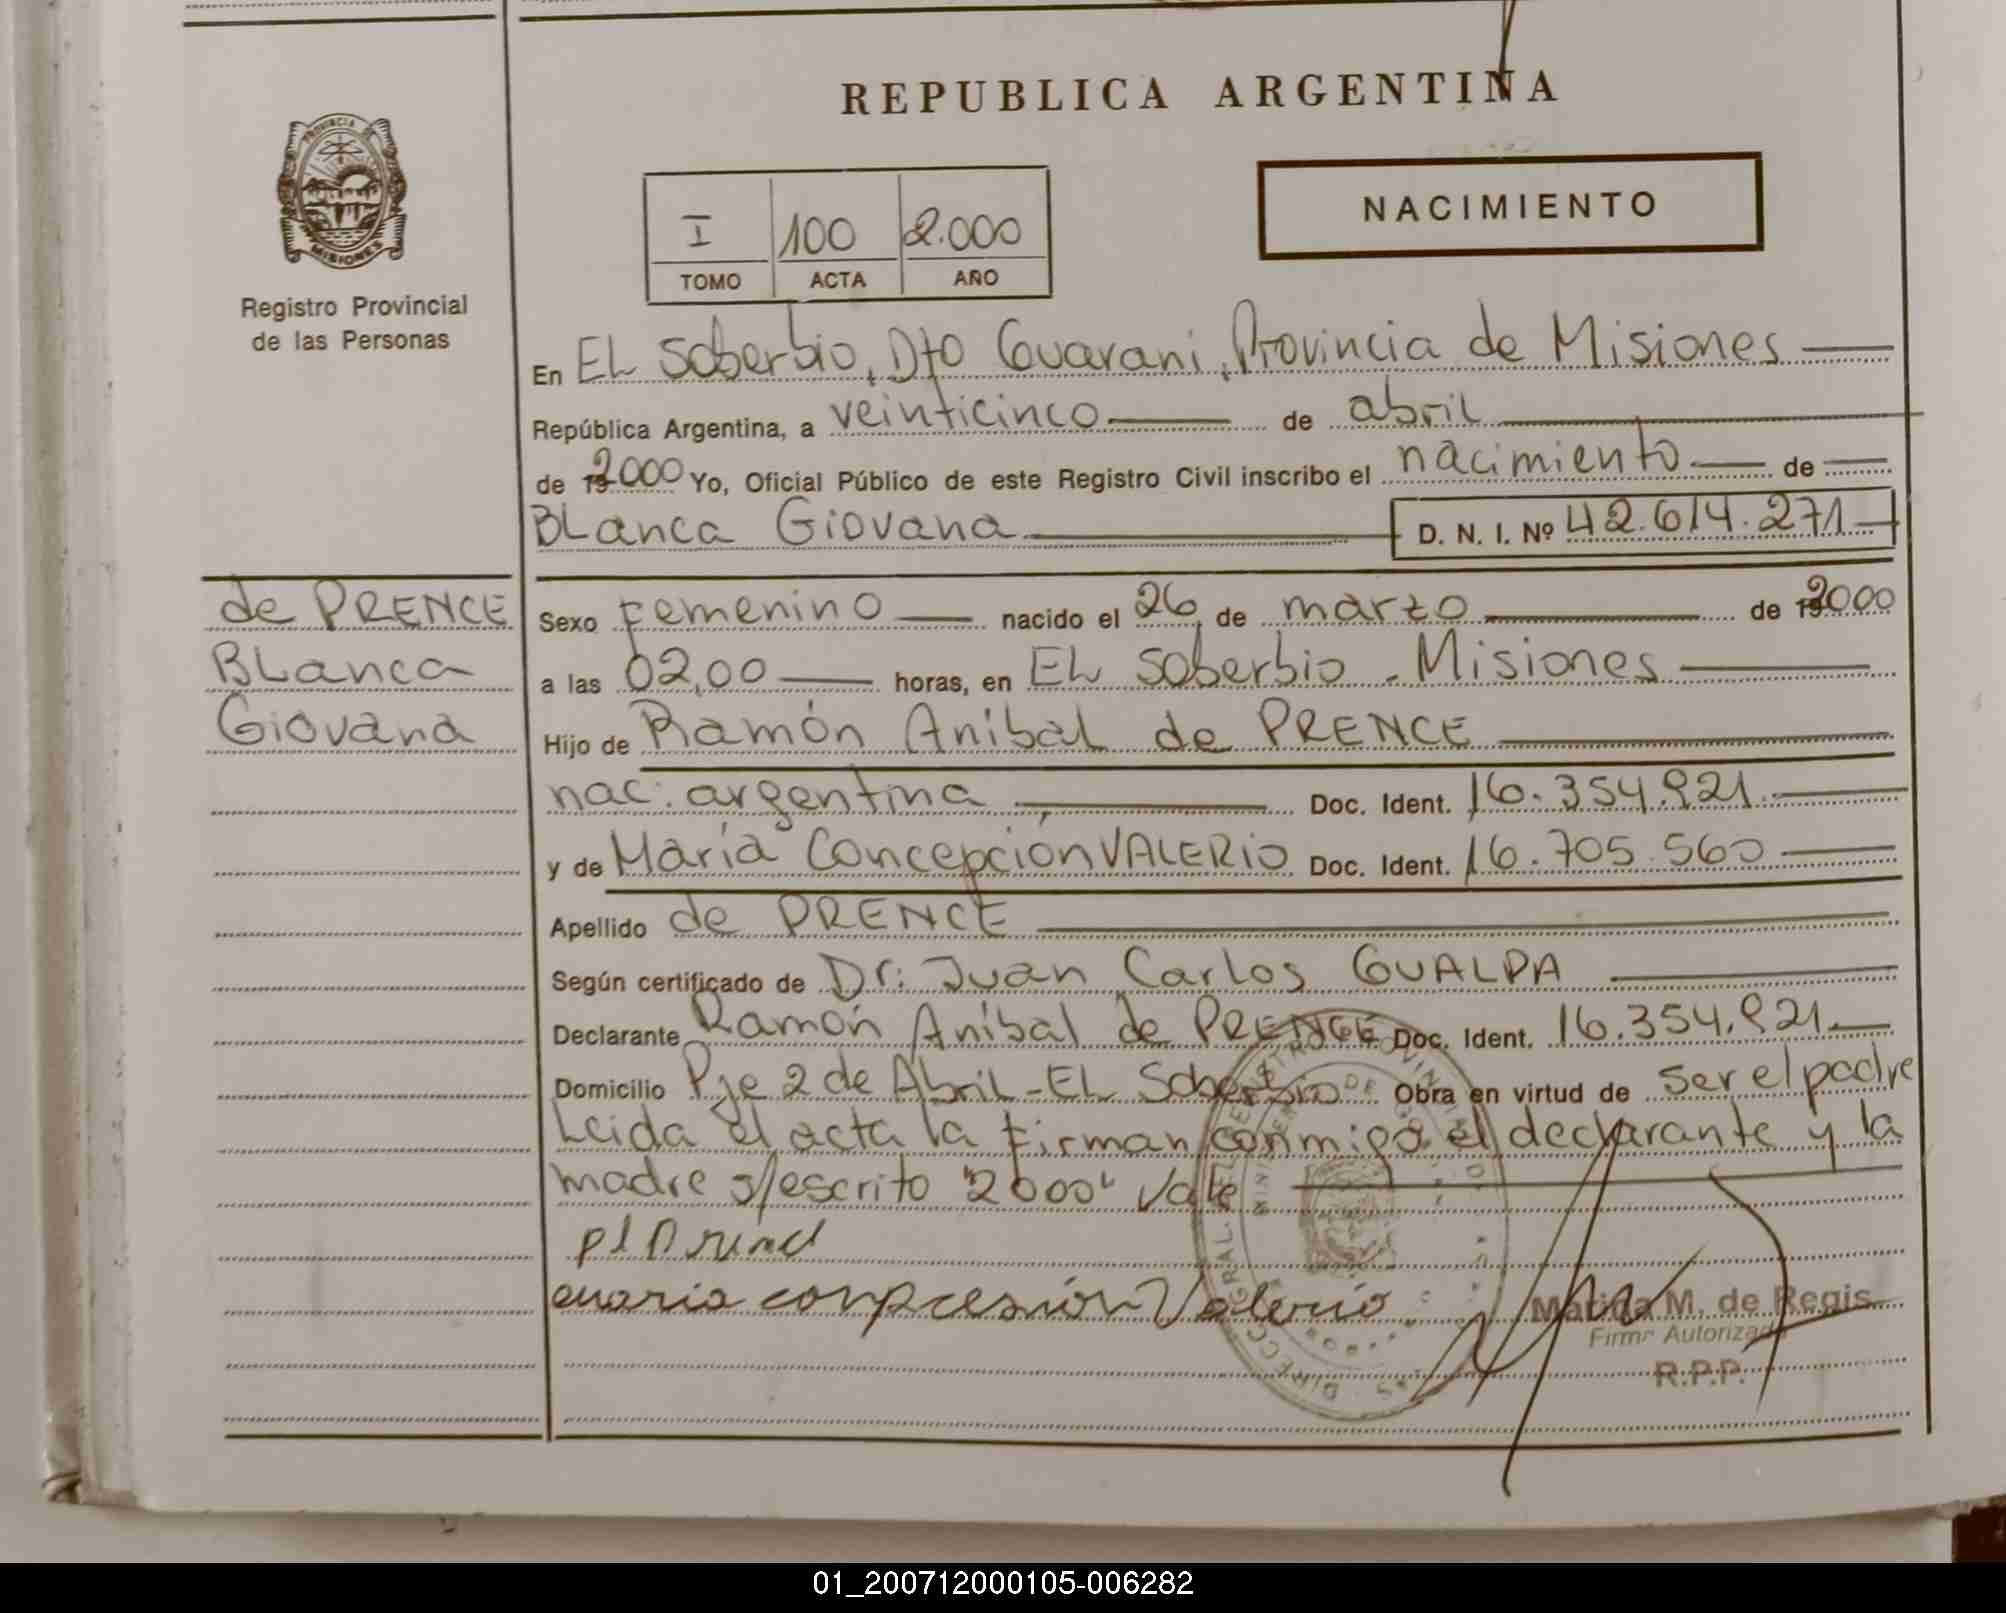 REPUBLICA ARGENTINA
PROVINCIA DE
MISIONES
Registro Provincial
de las Personas
I 100 2.000
TOMO ACTA AÑO
NACIMIENTO
En EL Soberbio, Dto Guarani, Provincia de Misiones
República Argentina, a veinticinco de abril
de 2000 Yo, Oficial Público de este Registro Civil inscribo el nacimiento de
BLanca Giovana D. N. I. Nº 42.614.271
de PRENCE
BLanca
Giovana
Sexo Femenino nacido el 26 de marzo de 2000
a las 02,00 horas, en EL Soberbio - Misiones
Hijo de Ramón Aníbal de PRENCE
nac: argentina Doc. Ident. 16.354.921
y de María Concepción VALERIO Doc. Ident. 16.705.560
Apellido de PRENCE
Según certificado de Dr: Juan Carlos GUALPA
Declarante Ramón Aníbal de PRENCE Doc. Ident. 16.354.921
Domicilio Pje 2 de Abril - EL Soberbio Obra en virtud de ser el padre
Leida el acta la firman conmigo el declarante y la
madre s/escrito "2000" Vale
Valerio
Matilda M. de Regis
Firma Autorizada
R.P.P.
01_200712000105-006282